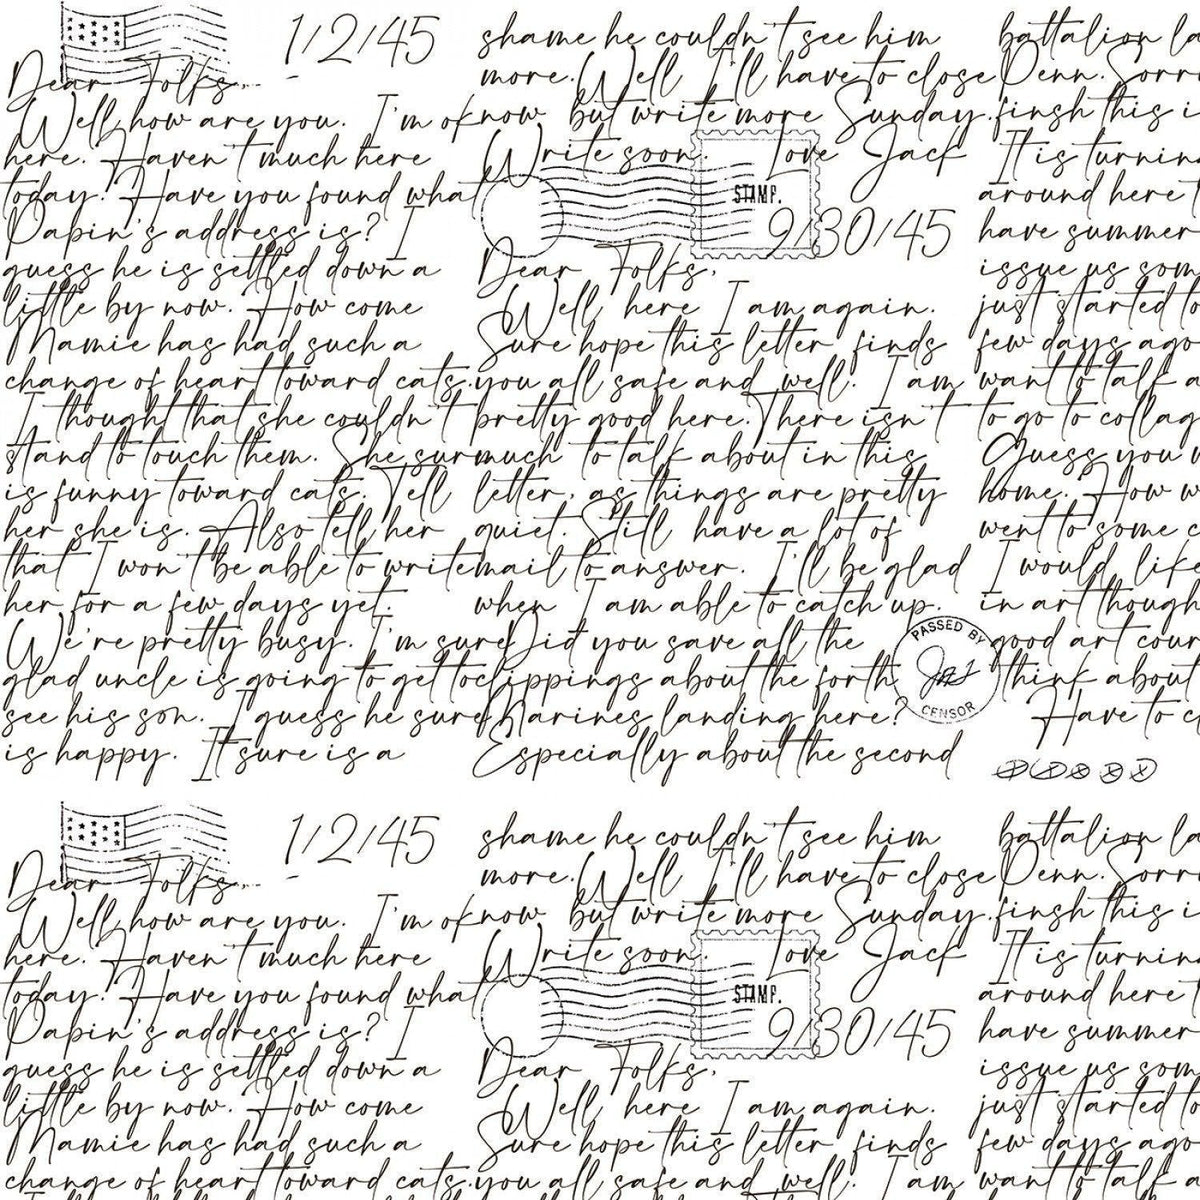 1/2/45
Dear Folks,
Well how are you. I'm ok
here. Haven't much here
today. Have you found what
Papin's address is? I
guess he is settled down a
little by now. How come
Mamie has had such a
change of heart toward cats.
I thought that she couldn't
stand to touch them. She sur
is funny toward cats. Tell
her she is. Also tell her
that I won't be able to write
her for a few days yet.
We're pretty busy. I'm sure
glad uncle is going to get to
see his son. I guess he sure
is happy. It sure is a
shame he couldn't see him
more. Well I'll have to close
now but write more Sunday.
Write soon. Love Jack
STAMP.
9/30/45
Dear Folks,
Well here I am again.
Sure hope this letter finds
you all safe and well. I am
pretty good here. There isn't
much to talk about in this
letter, as things are pretty
quiet. Still have a lot of
mail to answer. I'll be glad
when I am able to catch up.
Did you save all the
clippings about the forth
Marines landing here?
Especially about the second
PASSED BY
CENSOR
battalion la
Penn. Sorr
finsh this i
It is turnin
around here
have summer
issue us som
just started to
few days ago
want to talk a
to go to collag
Guess you w
home. How w
went to some c
I would like
in art though
good art cour
think about
Have to c
1/2/45
Dear Folks,
Well how are you. I'm ok
here. Haven't much here
today. Have you found what
Papin's address is? I
guess he is settled down a
little by now. How come
Mamie has had such a
change of heart toward cats.
shame he couldn't see him
more. Well I'll have to close
now but write more Sunday.
Write soon. Love Jack
STAMP.
9/30/45
Dear Folks,
Well here I am again.
Sure hope this letter finds
you all safe and well. I am
battalion la
Penn. Sorr
finsh this i
It is turnin
around here
have summer
issue us som
just started to
few days ago
want to talk a